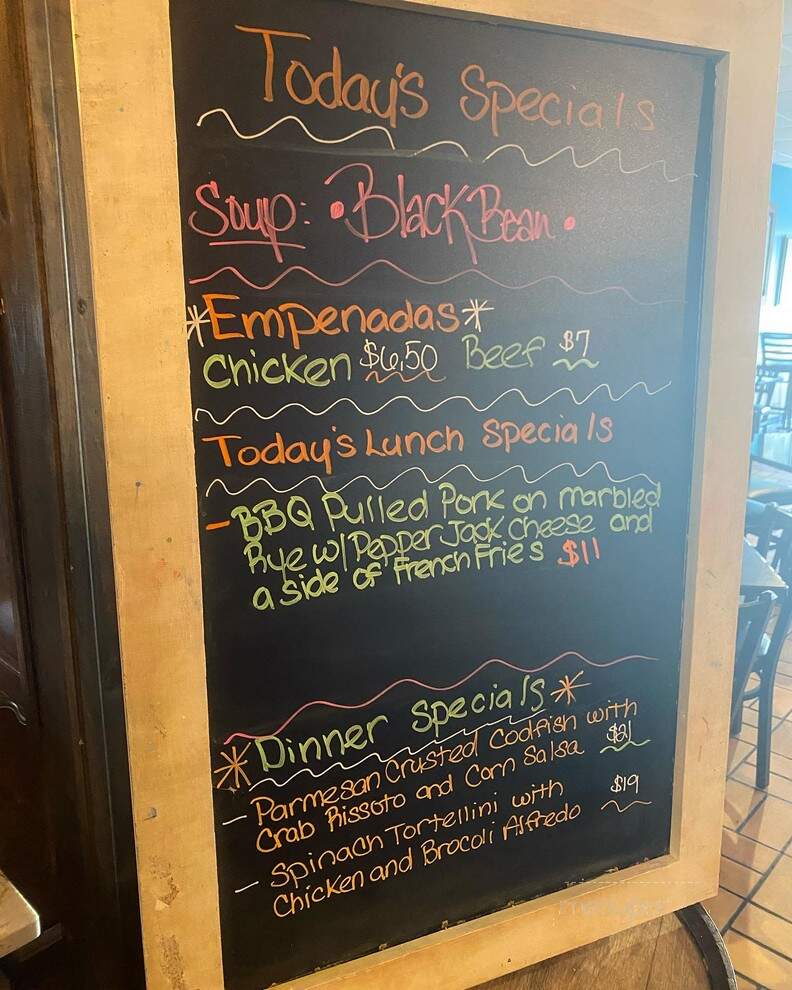 Today's Specials
Soup: • Black Bean •
*Empenadas*
Chicken $6.50 Beef $7
Today's Lunch Specials
- BBQ Pulled Pork on marbled
Rye w/ Pepper Jack Cheese and
a side of French Fries $11
*Dinner Specials*
- Parmesan Crusted Codfish with
Crab Rissoto and Corn Salsa $21
- Spinach Tortellini with $19
Chicken and Brocoli Alfredo